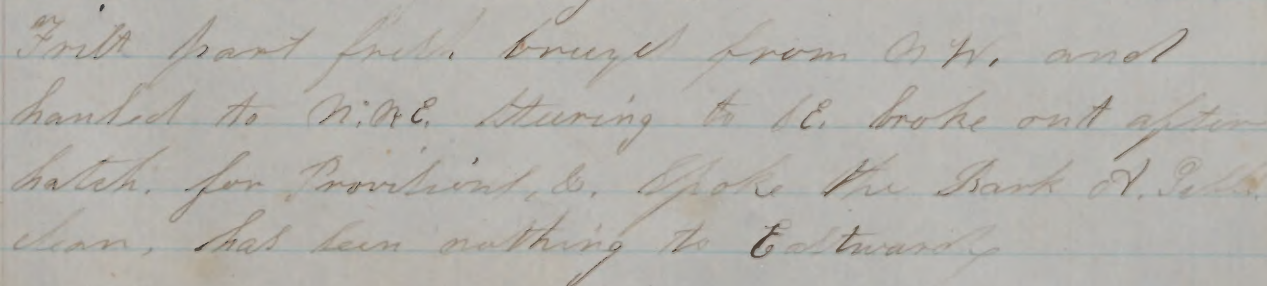 First part fresh breezes from N W. and
hauled to N.N.E. Steering to SE. broke out after
hatch. for Provisions, &. Spoke the Bark A.
clean, has seen nothing to Eastward